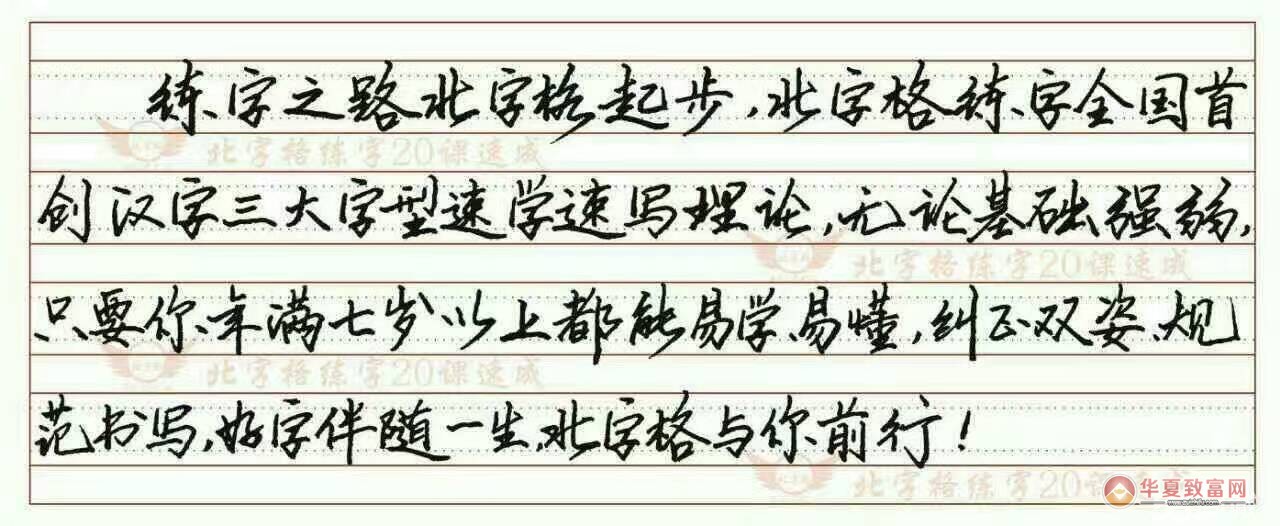 练字之路北字格起步,北字格练字全国首
北字格练字20课速成
创汉字三大字型速学速写理论,无论基础强弱,
北字格练字20课速成
只要你年满七岁以上都能易学易懂,纠正双姿、规
北字格练字20课速成
范书写,好字伴随一生,北字格与你前行!
北字格练字20课速成
华夏致富网